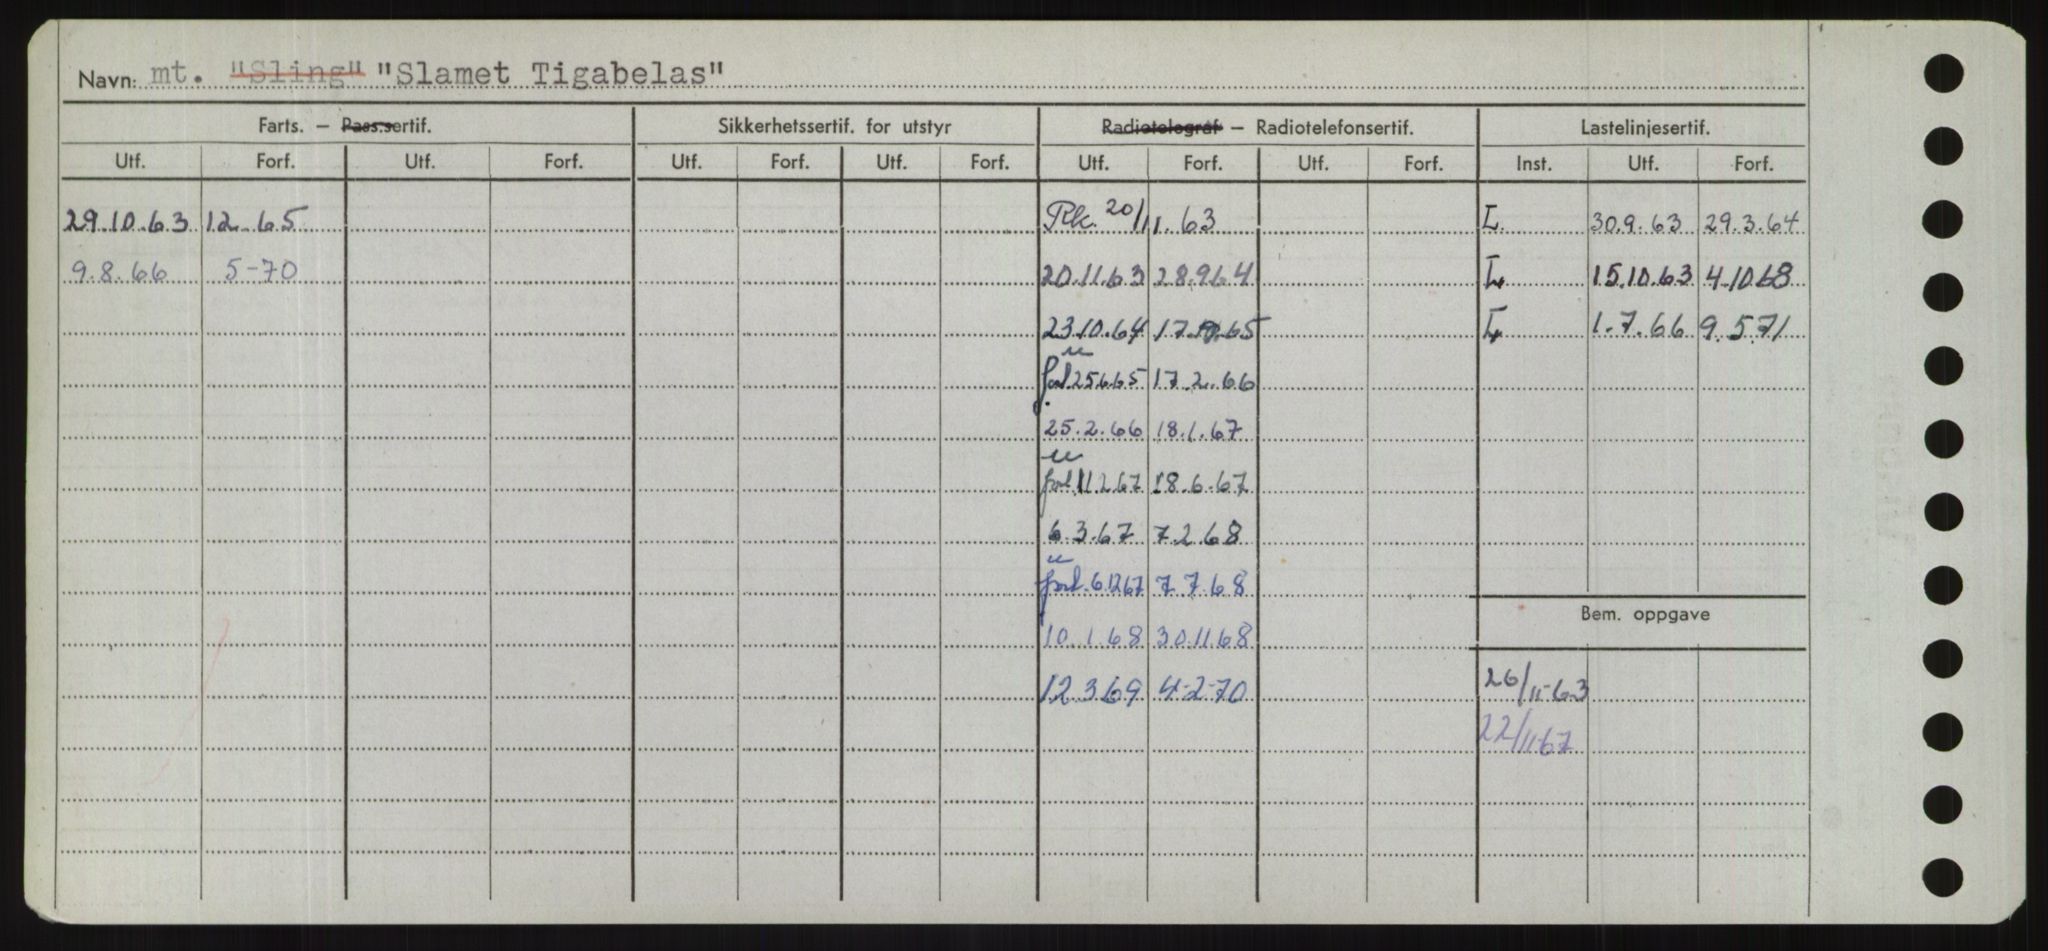 Navn: mt. "Sling" "Slamet Tigabelas"
Farts. — Pass.sertif. Sikkerhetssertif. for utstyr Radiotelegraf — Radiotelefonsertif. Lastelinjesertif.
Utf. Forf. Utf. Forf. Utf. Forf. Utf. Forf. Utf. Forf. Utf. Forf. Inst. Utf. Forf.
29.10.63 12.65 Rk. 20/11.63 L. 30.9.63 29.3.64
9.8.66 5-70 20.11.63 28.9.64 L. 15.10.63 4.10.68
23.10.64 17.9.65 L. 1.7.66 9.5.71
forl. 25.6.65 17.2.66
25.2.66 18.1.67
forl. 11.2.67 18.6.67
6.3.67 7.2.68
forl. 6.12.67 7.7.68
Bem. oppgave
10.1.68 30.11.68
12.3.69 4-2-70 26/11-63
22/11-67